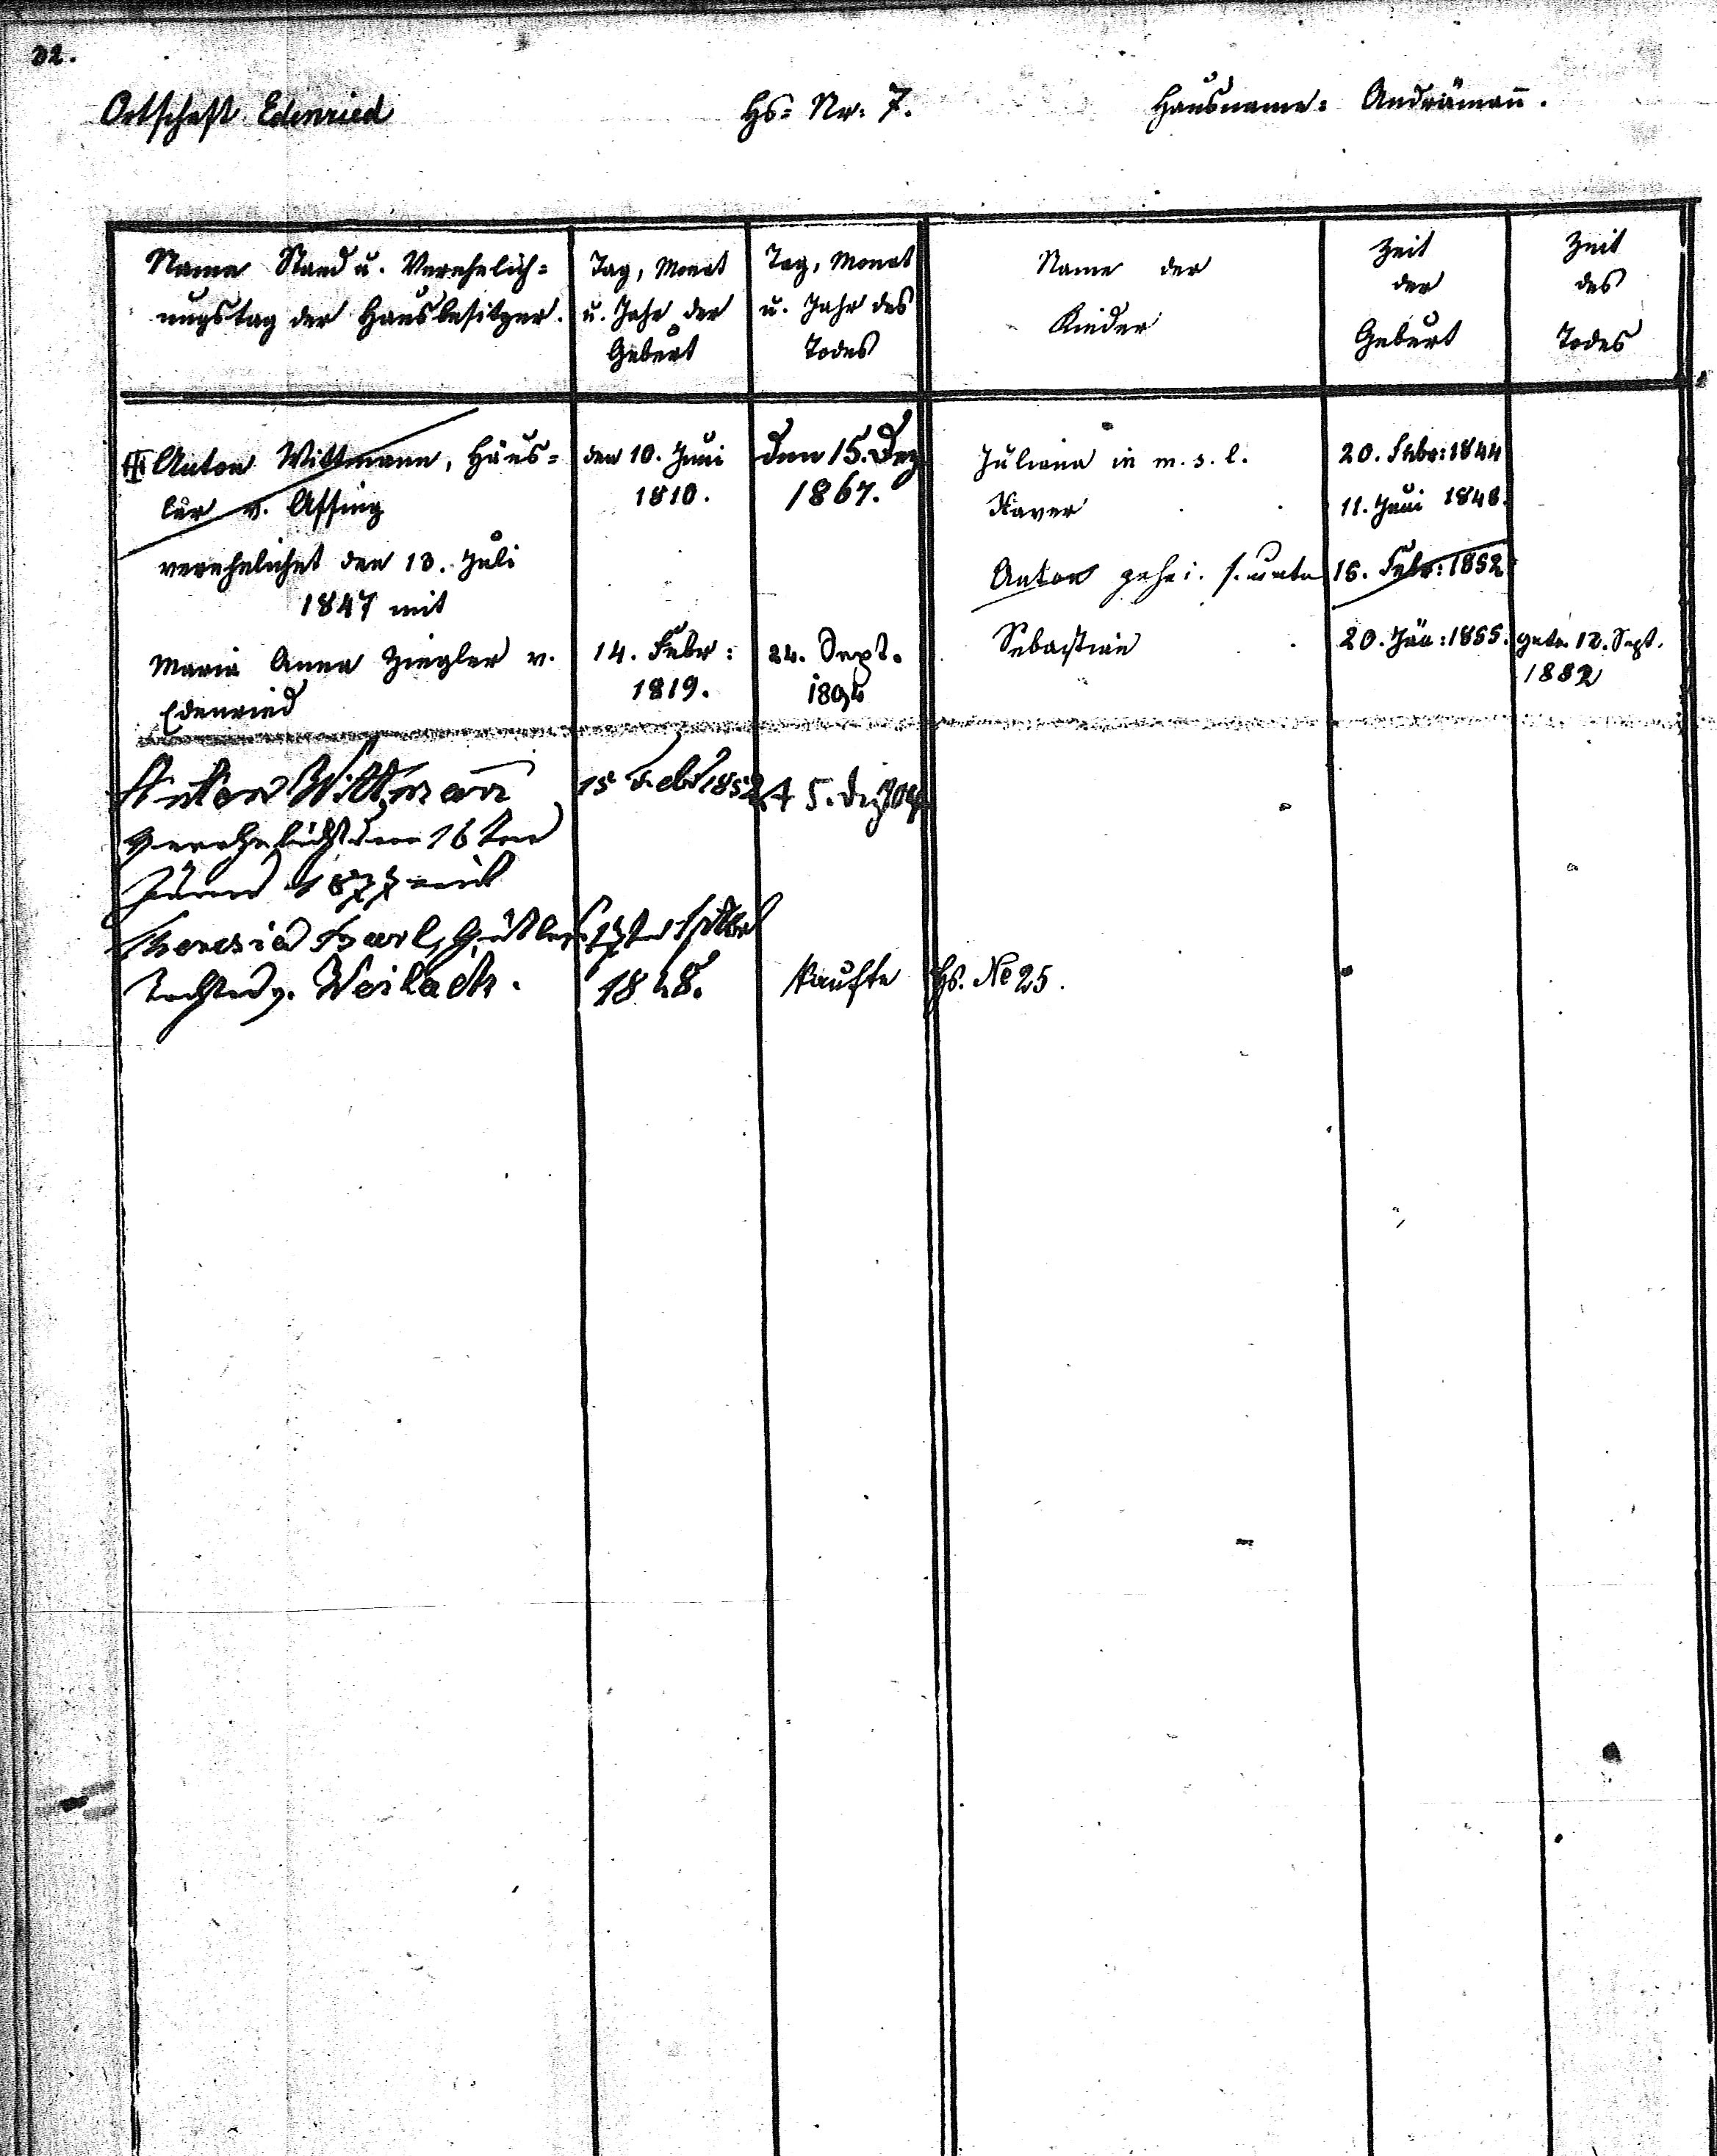 32.
Ortschaft Edenried Hs: Nr: 7. Hausname: Andrämañ.
Name Stand u. Verehelich=
ungstag der Hausbesitzer.
Tag, Monat
u. Jahr der
Geburt
Tag, Monat
u. Jahr des
Todes
Name der
Kinder
Zeit
der
Geburt
Zeit
des
Todes
Anton Wittmann, Häus=
ler v. Affing
den 10. Juni
1810.
den 15. Dez
1867.
verehelichet den 13. Juli
1847 mit
Maria Anna Ziegler v.
Edenried
14. Febr:
1819.
24. Sept.
1894
Juliana in m. s. l. 20. 1844
Xaver 11. Juni 1848.
Anton gehei. s. unten 15. Febr: 1852
Sebastian 20. Jän: 1855. getr. 12. Sept.
1882
Anton Wittmañ 15 Febr 1852 † 5. Dez
verehelicht den 16ten
1877 mit
Theresia Gütlers
tochter v. Weilach. 17ten
1848.
kaufte Hs. No 25.